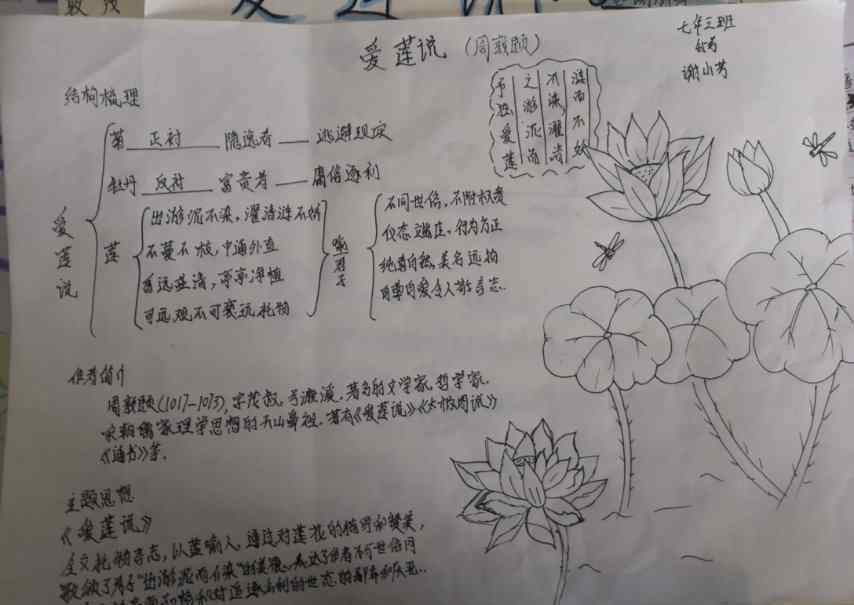 爱莲说（周敦颐）
七年三班
谢小芳
予独爱莲
之出淤泥而
不染，濯清
涟而不妖
结构梳理
爱莲说
菊 正衬 隐逸者 —— 逃避现实
牡丹 反衬 富贵者 —— 庸俗逐利
莲
出淤泥不染，濯清涟不妖
不蔓不枝，中通外直
香远益清，亭亭净植
可远观不可亵玩
喻君子
不同世俗，不附权贵
仪态端庄，行为方正
美名远扬
自尊自爱令人敬
作者简介
周敦颐(1017-1073)，字茂叔，号濂溪，著名的文学家，哲学家，
宋朝儒家理学思想的开山鼻祖，著有《爱莲说》《太极图说》
《通书》等。
主题思想
《爱莲说》
全文托物言志，以莲喻人，通过对莲花的描写和赞美，
歌颂了君子“出淤泥而不染”的美德，表达了作者不与世俗同